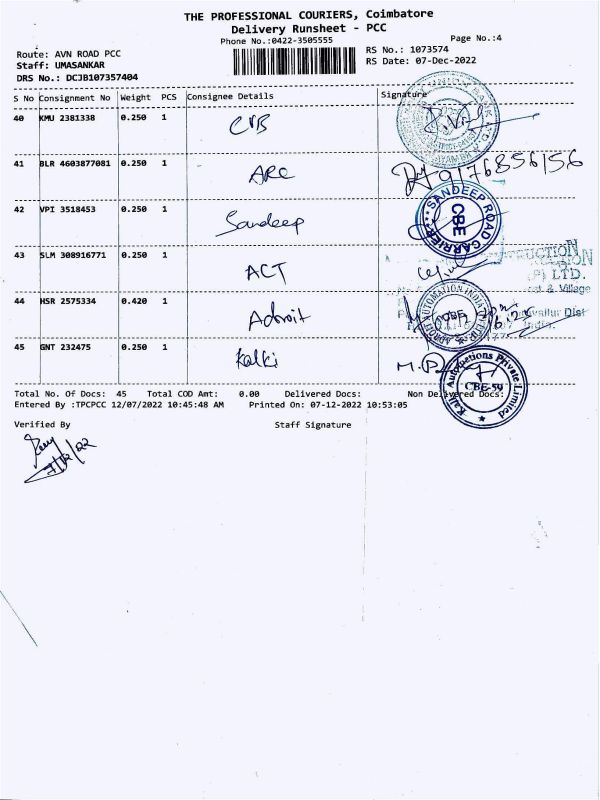 THE PROFESSIONAL COURIERS, Coimbatore
Delivery Runsheet - PCC
Phone No.:0422-3505555
Page No.:4
Route: AVN ROAD PCC
RS No.: 1073574
Staff: UMASANKAR
RS Date: 07-Dec-2022
DRS No.: DCJB107357404
S No Consignment No Weight PCS Consignee Details Signature
40 KMU 2381338 0.250 1 CUB
41 BLR 4603877081 0.250 1 ARC 9176856156
42 VPI 3518453 0.250 1 Sandeep
SANDEEP ROAD CARRIER
CBE
43 SLM 308916771 0.250 1 ACT
44 HSR 2575334 0.420 1 Adroit
ADROIT AUTOMATION INDIA
CBE
45 GNT 232475 0.250 1 Kalki
Automations Private Limited
CBE-59
Total No. Of Docs: 45 Total COD Amt: 0.00 Delivered Docs: Non Delivered Docs:
Entered By :TPCPCC 12/07/2022 10:45:48 AM Printed On: 07-12-2022 10:53:05
Verified By Staff Signature